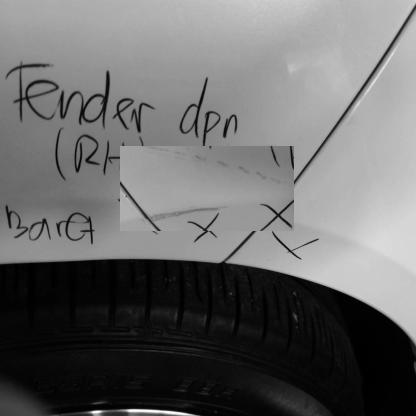 Fender dpn
(RH
Baret